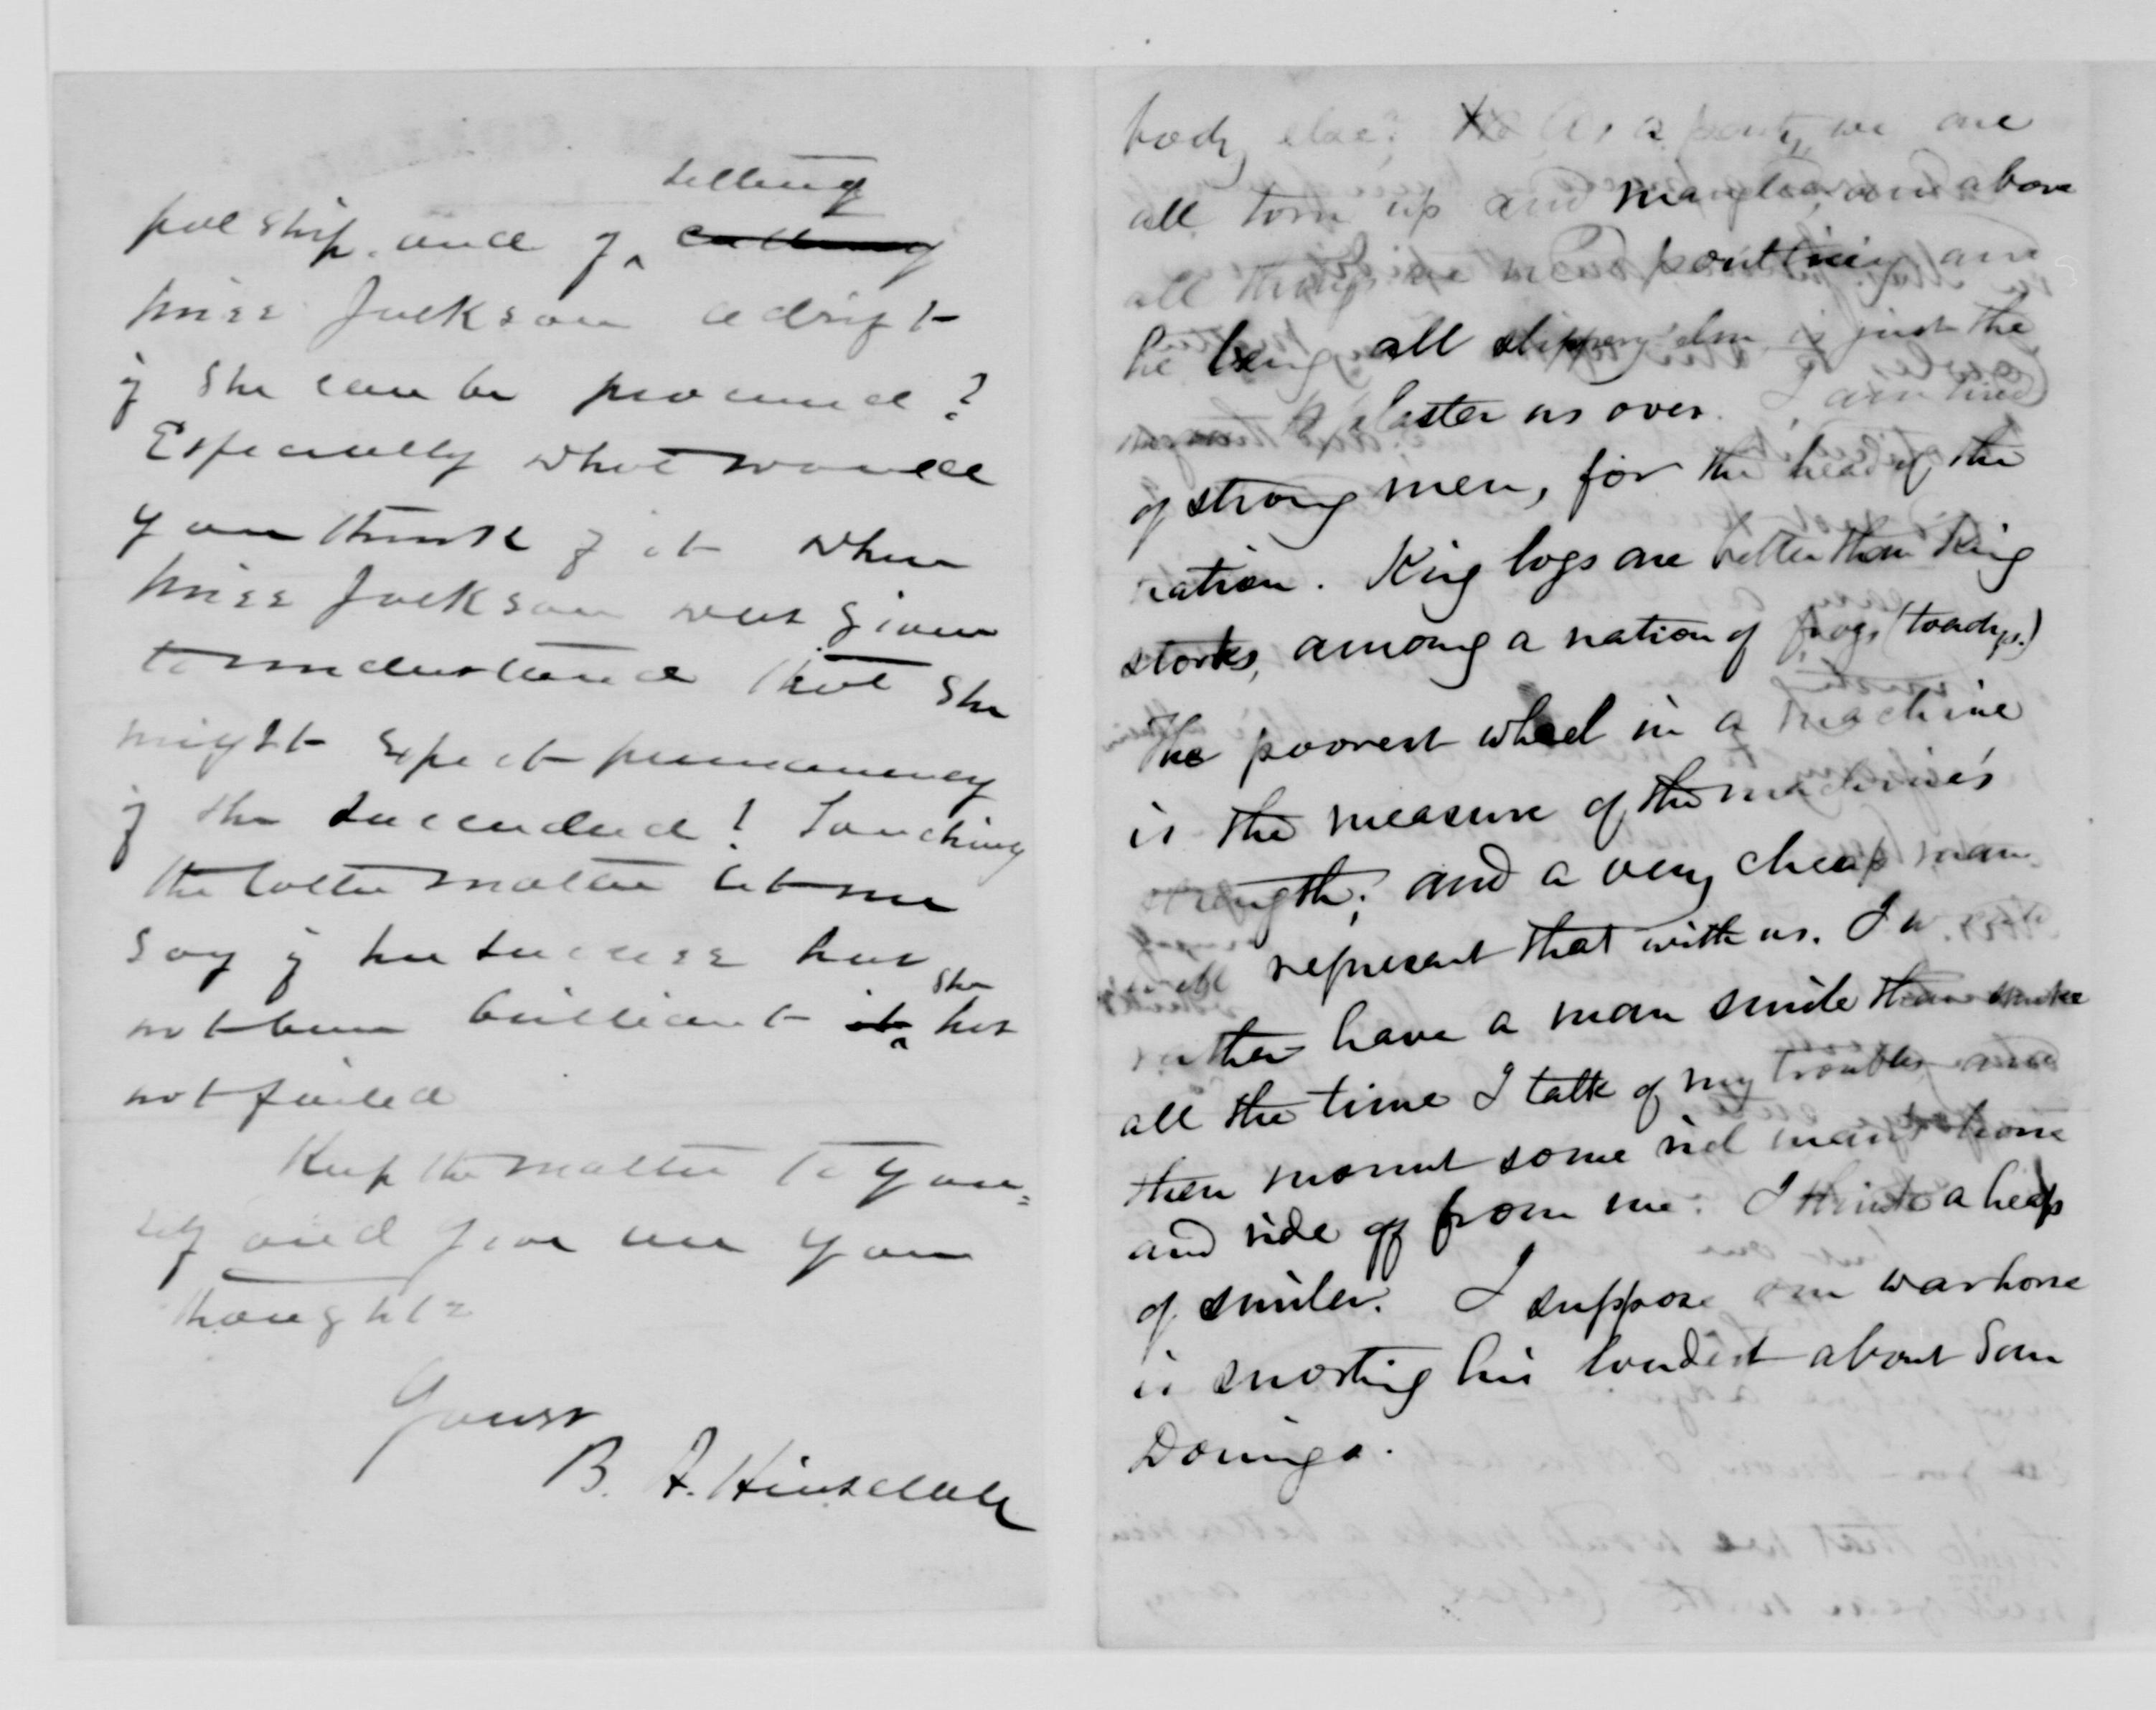 setting
palship. and of ^ cutting
Miss Jackson adrift
if she can be procured?
Especially what would
you think of it when
Miss Jackson was given
to understand that she
might expect permanency
if she succeeded! Touching
the latter matter let me
say if her success has
she
not been brilliant it ^ has
not failed
Keep the matter to your=
self and give me your
thoughts
Yours
B. A. Hinsdale
body else? As a party, we are
all torn up and mangled, and above
all things we need poulticing and
he being all slippery elm is just the
to plaster us over. I am tired
of strong men, for the head of the
nation. King logs are better than King
storks, among a nation of frogs (toadys.)
The poorest wheel in a machine
is the measure of the machine's
strength; and a very cheap man
will represent that with us. I w
rather have a man smile than smoke
all the time I talk of my troubles and
then mount some rich man's horse
and ride off from me. I think a heap
of smiler. I suppose our warhorse
is snorting his loudest about San
Domingo.